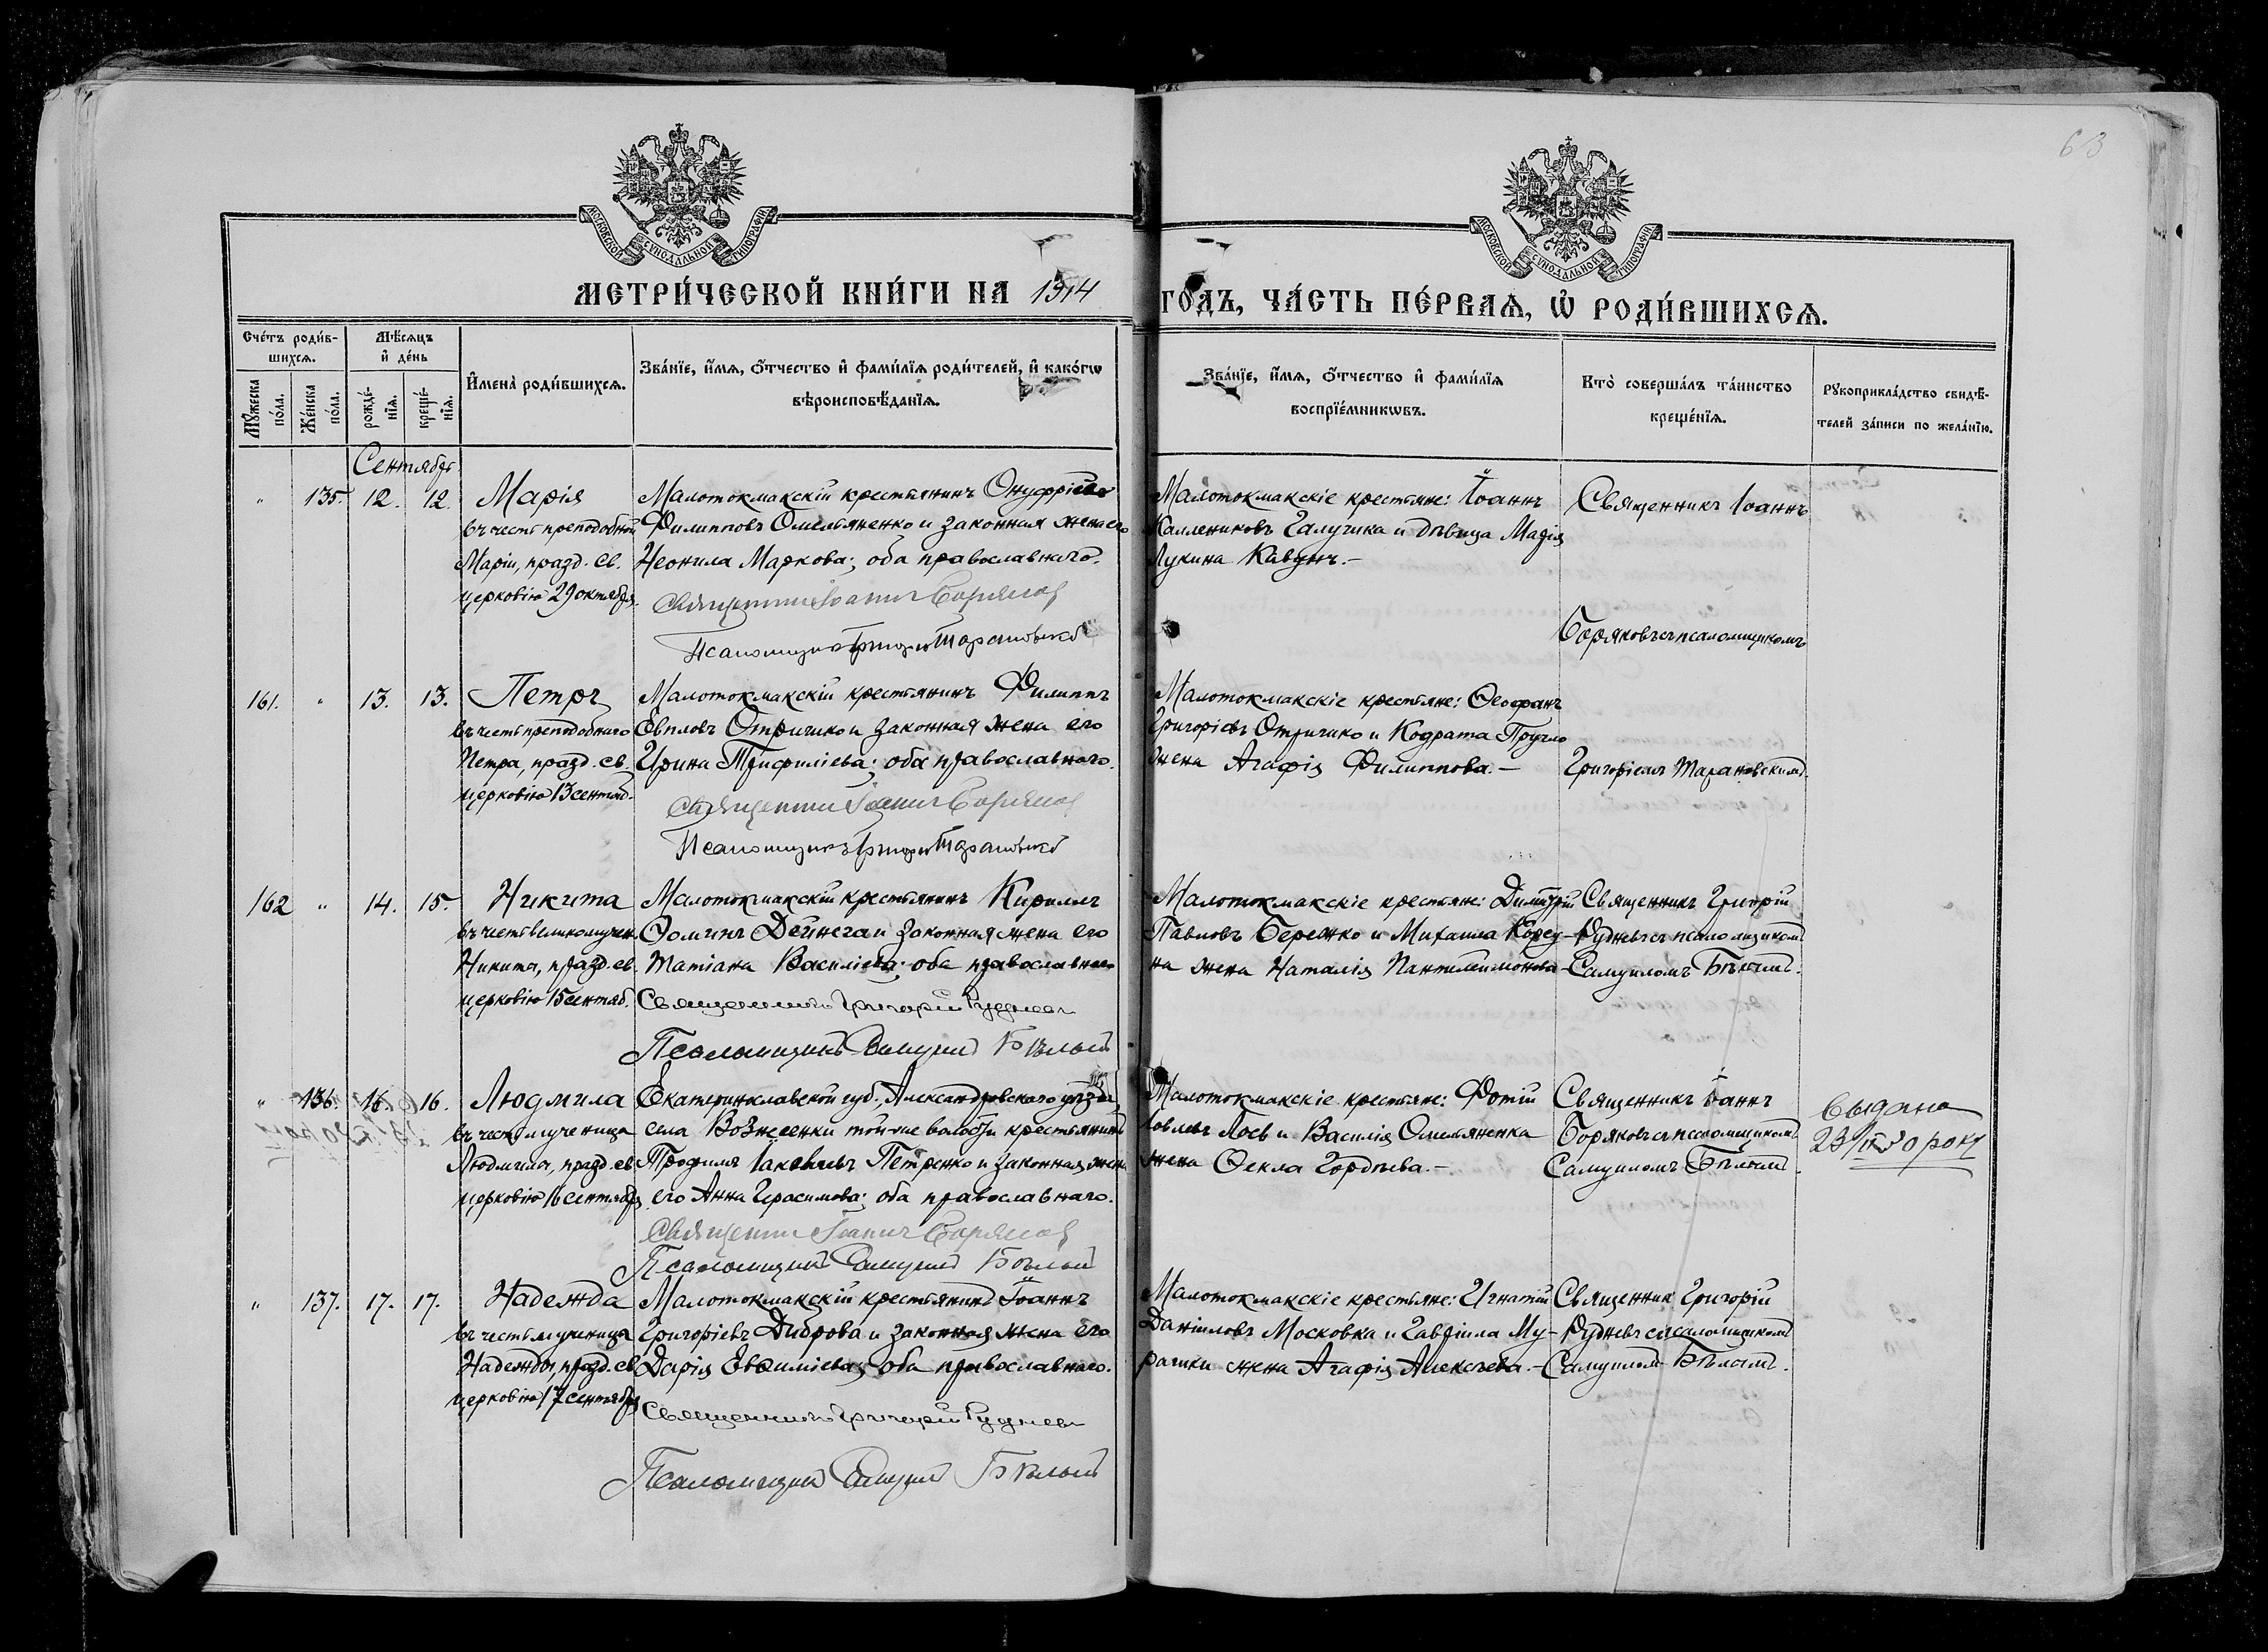 63
МОСКОВСКОЙ СѴНОДАЛЬНОЙ ТИПОГРАФІИ
МОСКОВСКОЙ СѴНОДАЛЬНОЙ ТИПОГРАФІИ
МЕТРИ́ЧЕСКОЙ КНИ́ГИ НА 1914 ГО́ДЪ, ЧА́СТЬ ПЕ́РВАѦ, Ѡ҆ РОДИ́ВШИХСѦ.
Сче́тъ роди́в-
шихсѧ.
Мꙋ́жеска по́ла.
Же́нска по́ла.
Мѣ́сѧцъ
и҆ де́нь
рожде́-
нїѧ.
креще́-
нїѧ.
И҆мена̀ роди́вшихсѧ.
Зва́нїе, и҆́мѧ, ѻ҆́тчество и҆ фами́лїѧ роди́телей, и҆ како́гѡ
вѣроисповѣ́данїѧ.
Зва́нїе, и҆́мѧ, ѻ҆́тчество и҆ фами́лїѧ
воспрїе́мникѡвъ.
Кто̀ соверша́лъ та́инство
креще́нїѧ.
Рꙋкоприкла́дство свидѣ́-
телей за́писи по жела́нїю.
Сентябрь
" 135. 12. 12.
Марія
въ честь преподобной
Маріи, празд. св.
церковію 29 октября.
Малотокмакскій крестьянинъ Онуфрій
Филипповъ Омельяненко и законная жена его
Неонила Маркова; оба православнаго.
Священникъ Іоаннъ Боряковъ
Псаломщикъ Григорій Тарановскій
Малотокмакскіе крестьяне: Іоаннъ
Каллениковъ Галушка и дѣвица Марія
Лукина Кавунъ.-
Священникъ Іоаннъ
Боряковъ съ псаломщикомъ
161. " 13. 13.
Петръ
въ честь преподобнаго
Петра, празд. св.
церковію 13 сентяб.
Малотокмакскій крестьянинъ Филиппъ
Евпловъ Отришко и законная жена его
Ирина Трифиліева; оба православнаго.
Священникъ Іоаннъ Боряковъ
Псаломщикъ Григорій Тарановскій
Малотокмакскіе крестьяне: Ѳеофанъ
Григорьевъ Отришко и Кодрата
жена Агафія Филиппова.-
Григоріемъ Тарановскимъ.
162 " 14. 15.
Никита
въ честь великомучен.
Никиты, празд. св.
церковію 15 сентяб.
Малотокмакскій крестьянинъ Кириллъ
Ѳоминъ Дейнега и законная жена его
Татіана Василіева; оба православнаго
Священникъ Григорій Рудневъ
Псаломщикъ Самуилъ Бѣлый
Малотокмакскіе крестьяне: Димитрій
Павловъ Бережко и Михаила Корсу-
на жена Наталія Пантелеимонова-
Священникъ Григорій
Рудневъ съ псаломщикомъ
Самуиломъ Бѣлымъ.
" 136. 16. 16.
Людмила
въ честь мученицы
Людмилы, празд. св.
церковію 16 сентября
Екатеринославской губ., Александровскаго уѣзда,
села Вознесенки той-же волости крестьянинъ
Трофимъ Іаковлевъ Петренко и законная жена
его Анна Герасимова; оба православнаго.
Священникъ Іоаннъ Боряковъ
Псаломщикъ Самуилъ Бѣлый
Малотокмакскіе крестьяне: Фотій
Іовлевъ Лось и Василія Омельяненка
жена Ѳекла Гордѣева.-
Священникъ Іоаннъ
Боряковъ съ псаломщикомъ
Самуиломъ Бѣлымъ.
Выдано
30 року
" 137. 17. 17.
Надежда
въ честь мученицы
Надежды, празд. св.
церковію 17 сентября
Малотокмакскій крестьянинъ Іоаннъ
Григоріевъ Диброва и законная жена его
Дарія Евѳиміева; оба православнаго.
Священникъ Григорій Рудневъ
Псаломщикъ Самуилъ Бѣлый
Малотокмакскіе крестьяне: Игнатій
Даніиловъ Московка и Гавріила Му-
рашки жена Агафія Алексѣева.-
Священникъ Григорій
Рудневъ съ псаломщикомъ
Самуиломъ Бѣлымъ.